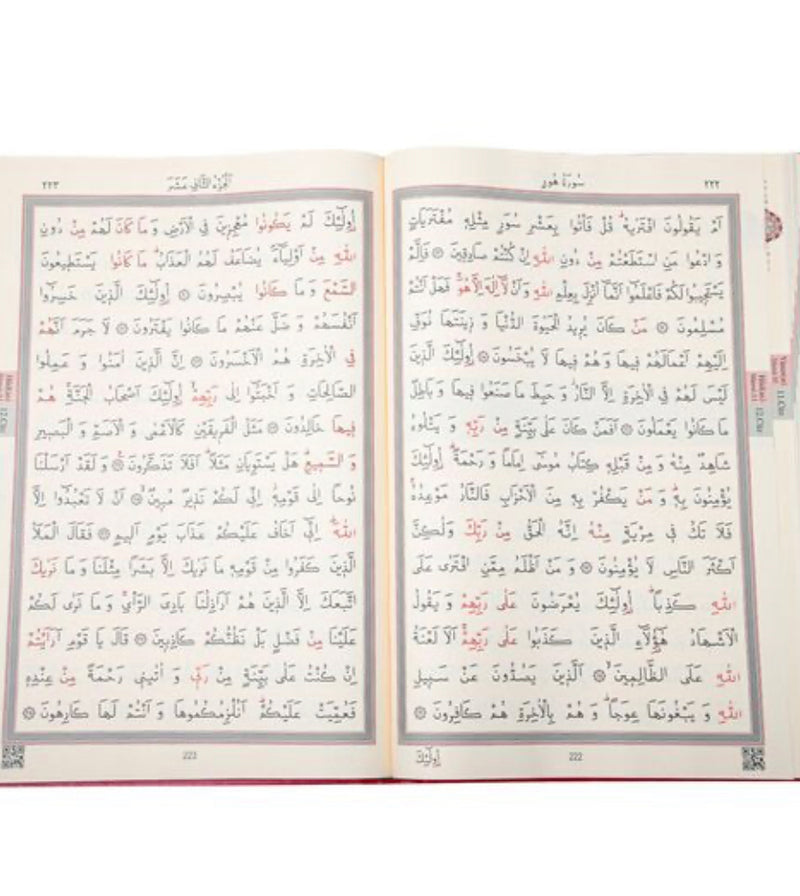 ٢٢٢
سُورَةُ هُودٍ
اَمْ يَقُولُونَ افْتَرٰيهُۜ قُلْ فَأْتُوا بِعَشْرِ سُوَرٍ مِثْلِه۪ مُفْتَرَيَاتٍ
وَادْعُوا مَنِ اسْتَطَعْتُمْ مِنْ دُونِ اللّٰهِ اِنْ كُنْتُمْ صَادِق۪ينَ ۞ فَاِلَّمْ
يَسْتَج۪يبُوا لَكُمْ فَاعْلَمُٓوا اَنَّمَٓا اُنْزِلَ بِعِلْمِ اللّٰهِ وَاَنْ لَٓا اِلٰهَ اِلَّا هُوَۚ فَهَلْ اَنْتُمْ
مُسْلِمُونَ ۞ مَنْ كَانَ يُر۪يدُ الْحَيٰوةَ الدُّنْيَا وَز۪ينَتَهَا نُوَفِّ
اِلَيْهِمْ اَعْمَالَهُمْ ف۪يهَا وَهُمْ ف۪يهَا لَا يُبْخَسُونَ ۞ اُو۬لٰٓئِكَ الَّذ۪ينَ
لَيْسَ لَهُمْ فِي الْاٰخِرَةِ اِلَّا النَّارُۘ وَحَبِطَ مَا صَنَعُوا ف۪يهَا وَبَاطِلٌ
مَا كَانُوا يَعْمَلُونَ ۞ اَفَمَنْ كَانَ عَلٰى بَيِّنَةٍ مِنْ رَبِّه۪ وَيَتْلُوهُ
شَاهِدٌ مِنْهُ وَمِنْ قَبْلِه۪ كِتَابُ مُوسٰٓى اِمَامًا وَرَحْمَةًۜ اُو۬لٰٓئِكَ
يُؤْمِنُونَ بِه۪ۜ وَمَنْ يَكْفُرْ بِه۪ مِنَ الْاَحْزَابِ فَالنَّارُ مَوْعِدُهُۚ
فَلَا تَكُ ف۪ي مِرْيَةٍ مِنْهُ اِنَّهُ الْحَقُّ مِنْ رَبِّكَ وَلٰكِنَّ
اَكْثَرَ النَّاسِ لَا يُؤْمِنُونَ ۞ وَمَنْ اَظْلَمُ مِمَّنِ افْتَرٰى عَلَى
اللّٰهِ كَذِبًاۜ اُو۬لٰٓئِكَ يُعْرَضُونَ عَلٰى رَبِّهِمْ وَيَقُولُ
الْاَشْهَادُ هٰٓؤُ۬لَٓاءِ الَّذ۪ينَ كَذَبُوا عَلٰى رَبِّهِمْۚ اَلَا لَعْنَةُ
اللّٰهِ عَلَى الظَّالِم۪ينَۙ ۞ اَلَّذ۪ينَ يَصُدُّونَ عَنْ سَب۪يلِ
اللّٰهِ وَيَبْغُونَهَا عِوَجًاۜ وَهُمْ بِالْاٰخِرَةِ هُمْ كَافِرُونَ ۞
222
اُو۬لٰٓئِكَ
٢٢٣
اَلْجُزْءُ الثَّانِي عَشَرَ
اُو۬لٰٓئِكَ لَمْ يَكُونُوا مُعْجِز۪ينَ فِي الْاَرْضِ وَمَا كَانَ لَهُمْ مِنْ دُونِ
اللّٰهِ مِنْ اَوْلِيَٓاءَۢ يُضَاعَفُ لَهُمُ الْعَذَابُۜ مَا كَانُوا يَسْتَط۪يعُونَ
السَّمْعَ وَمَا كَانُوا يُبْصِرُونَ ۞ اُو۬لٰٓئِكَ الَّذ۪ينَ خَسِرُٓوا
اَنْفُسَهُمْ وَضَلَّ عَنْهُمْ مَا كَانُوا يَفْتَرُونَ ۞ لَا جَرَمَ اَنَّهُمْ
فِي الْاٰخِرَةِ هُمُ الْاَخْسَرُونَ ۞ اِنَّ الَّذ۪ينَ اٰمَنُوا وَعَمِلُوا
الصَّالِحَاتِ وَاَخْبَتُٓوا اِلٰى رَبِّهِمْۙ اُو۬لٰٓئِكَ اَصْحَابُ الْجَنَّةِۚ هُمْ
ف۪يهَا خَالِدُونَ ۞ مَثَلُ الْفَر۪يقَيْنِ كَالْاَعْمٰى وَالْاَصَمِّ وَالْبَص۪يرِ
وَالسَّم۪يعِۜ هَلْ يَسْتَوِيَانِ مَثَلًاۜ اَفَلَا تَذَكَّرُونَ۟ ۞ وَلَقَدْ اَرْسَلْنَا
نُوحًا اِلٰى قَوْمِه۪ۘ اِنّ۪ي لَكُمْ نَذ۪يرٌ مُب۪ينٌۙ ۞ اَنْ لَا تَعْبُدُٓوا اِلَّا
اللّٰهَۜ اِنّ۪ٓي اَخَافُ عَلَيْكُمْ عَذَابَ يَوْمٍ اَل۪يمٍ ۞ فَقَالَ الْمَلَاُ
الَّذ۪ينَ كَفَرُوا مِنْ قَوْمِه۪ مَا نَرٰيكَ اِلَّا بَشَرًا مِثْلَنَا وَمَا نَرٰيكَ
اتَّبَعَكَ اِلَّا الَّذ۪ينَ هُمْ اَرَاذِلُنَا بَادِيَ الرَّأْيِۚ وَمَا نَرٰى لَكُمْ
عَلَيْنَا مِنْ فَضْلٍ بَلْ نَظُنُّكُمْ كَاذِب۪ينَ ۞ قَالَ يَا قَوْمِ اَرَاَيْتُمْ
اِنْ كُنْتُ عَلٰى بَيِّنَةٍ مِنْ رَبّ۪ي وَاٰتٰين۪ي رَحْمَةً مِنْ عِنْدِه۪
فَعُمِّيَتْ عَلَيْكُمْۜ اَنُلْزِمُكُمُوهَا وَاَنْتُمْ لَهَا كَارِهُونَ ۞
223
11.Cüz
12.Cüz